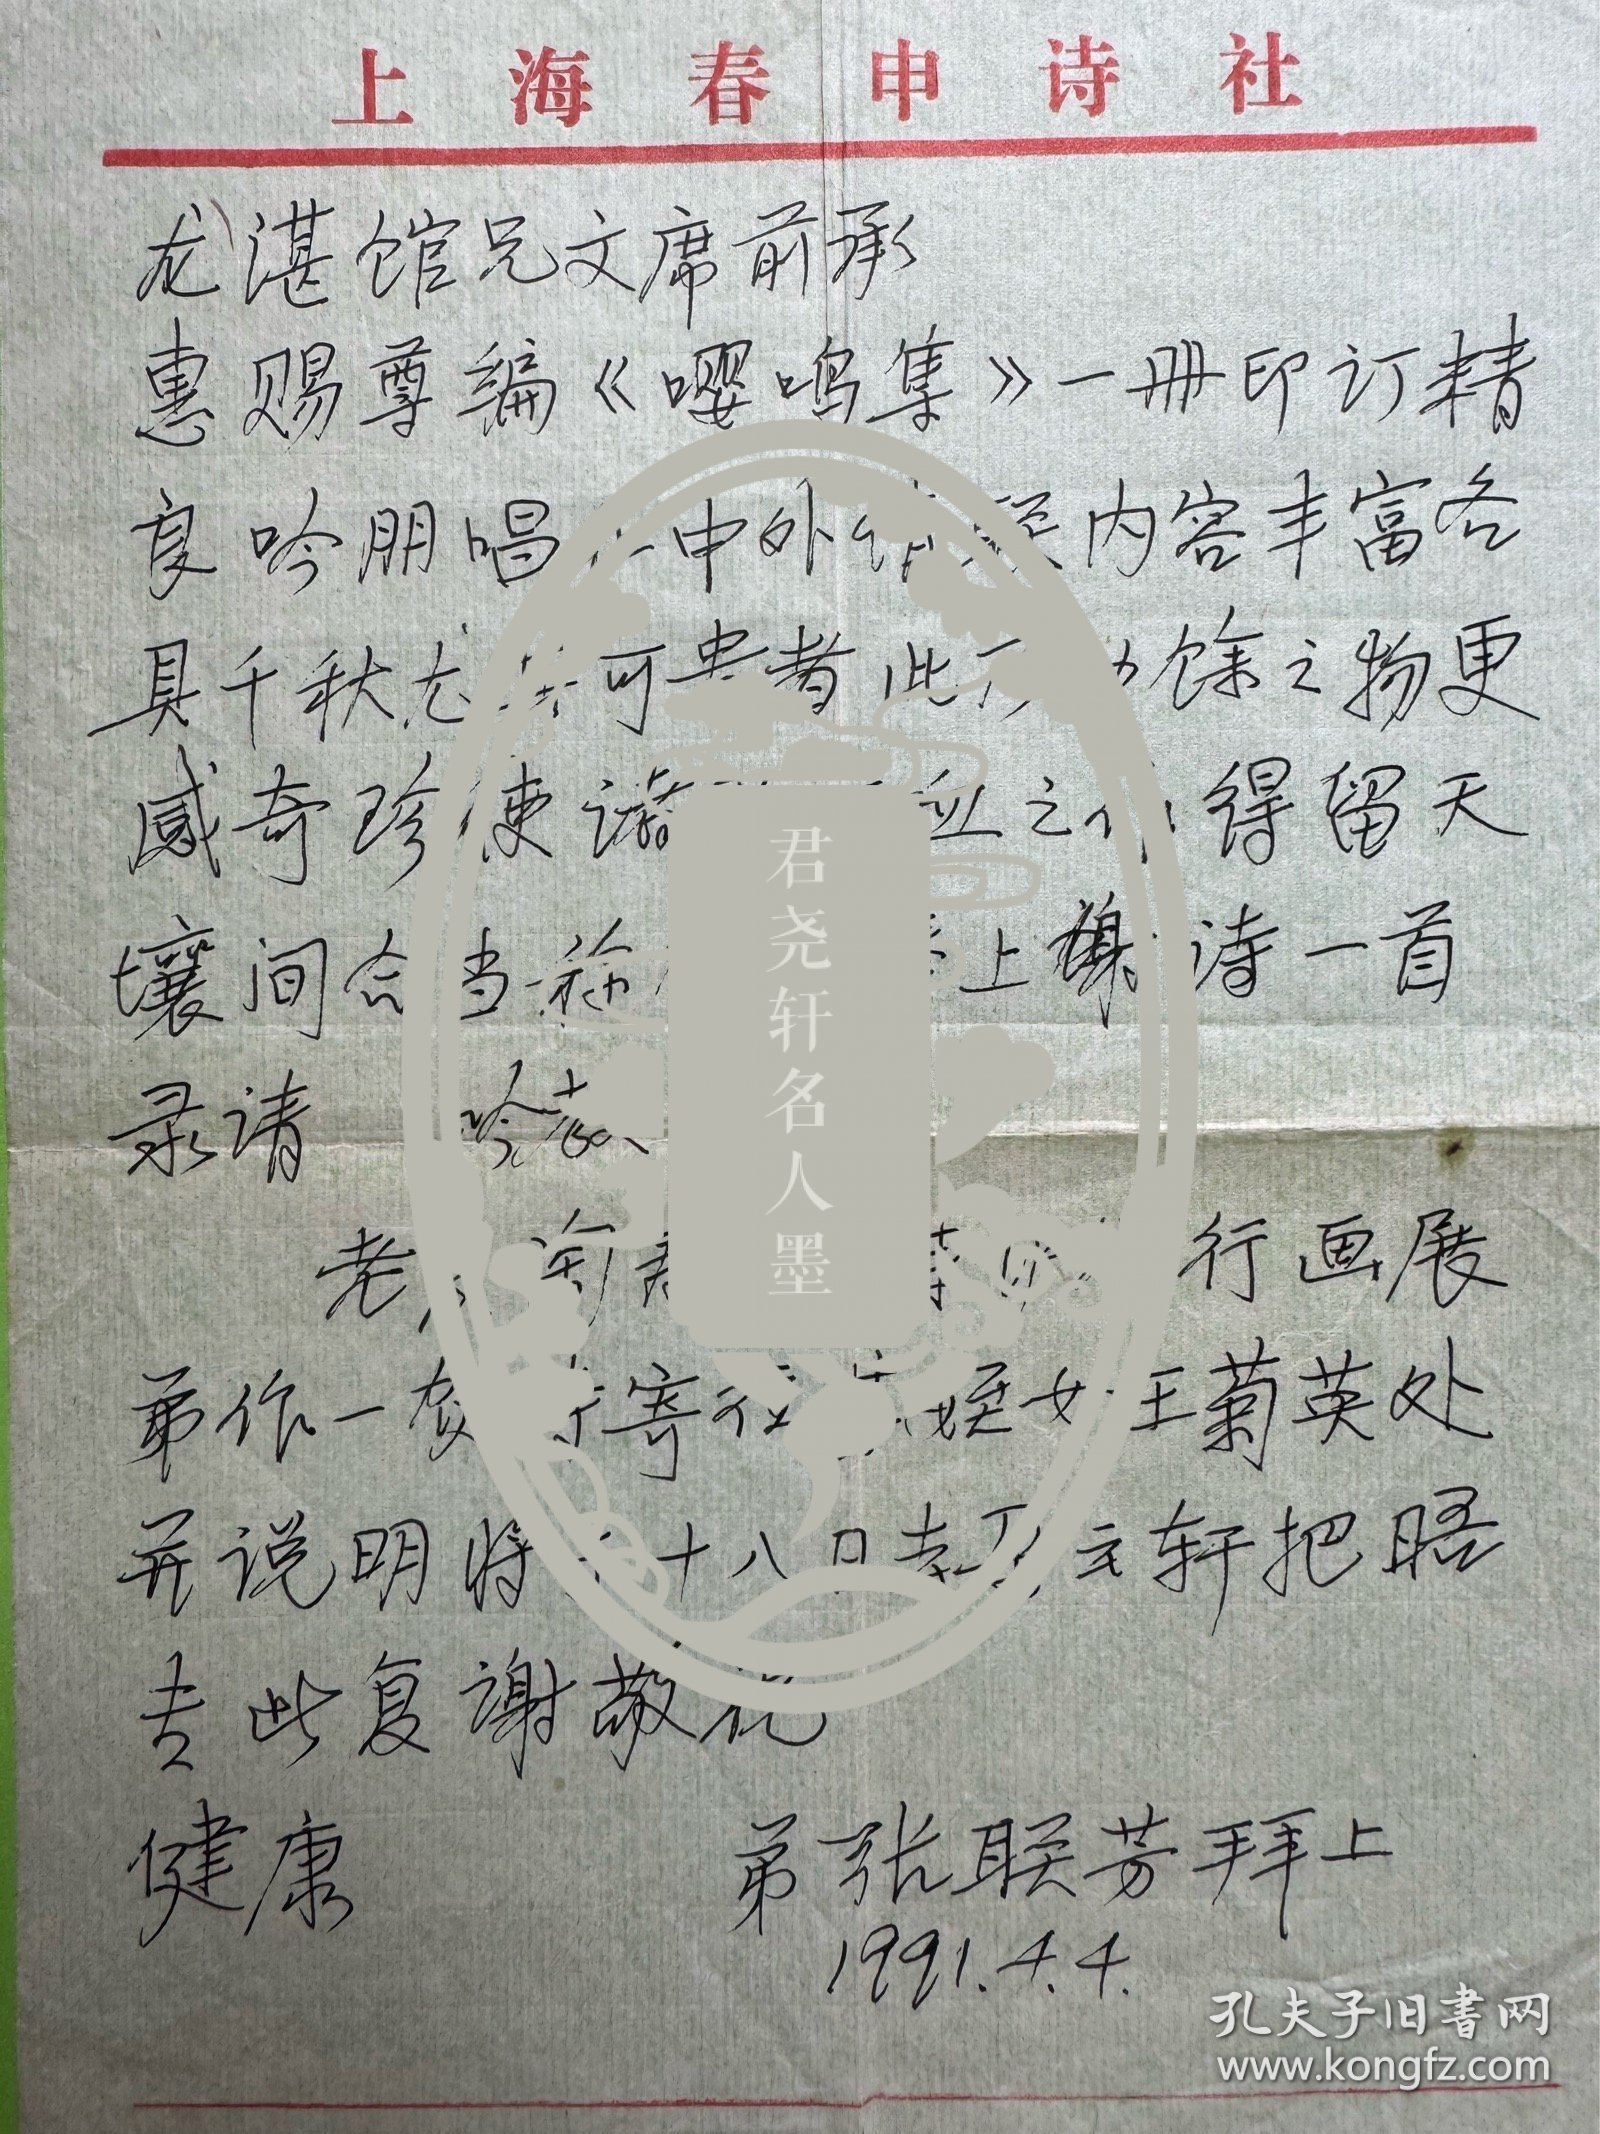 上海春申诗社
龙湛馆兄文席前承
惠赐尊编《嘤鸣集》一册印订精
良吟朋唱中外内容丰富各
具千秋尤可贵者此馀之物更
感奇珍使诸之得留天
壤间合当上谢诗一首
录请 吟教
老行画展
弟作一贺诗寄侄女王菊英处
并说明将十八日去轩把晤
专此复谢敬祝
健康 弟张联芳拜上
1991.4.4.
君尧轩名人墨
孔夫子旧书网
www.kongfz.com